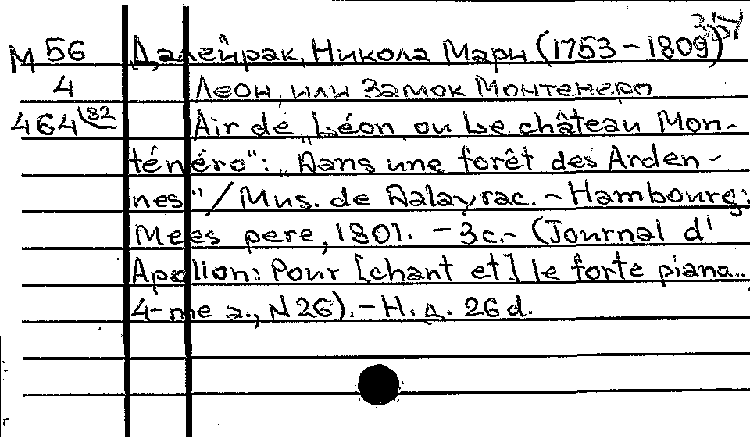 М 56 Далейрак, Никола Мари (1753-1809)
4 Леон, или Замок Монтенеро
464 82 Air de „Léon ou Le château Mon-
ténéro": „Dans une forêt des Arden-
nes"/Mus. de Dalayrac. - Hambourg:
Mees pere, 1801. - 3с.- (Journal d'
Apollon: Pour [chant et] le forte piano..
4-me a., N 26). - Н. д. 26 d.